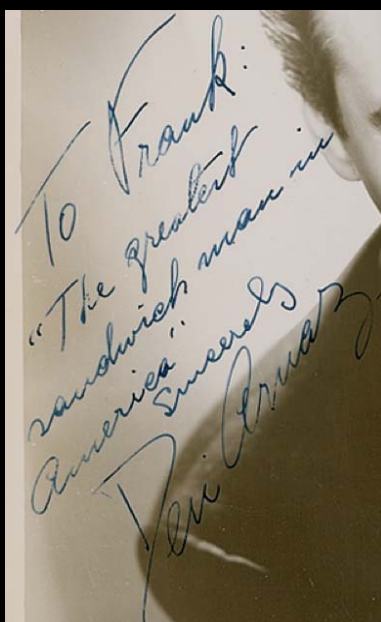 To Frank:
"The greatest
sandwich man in
America".
Sincerely
Desi Arnaz